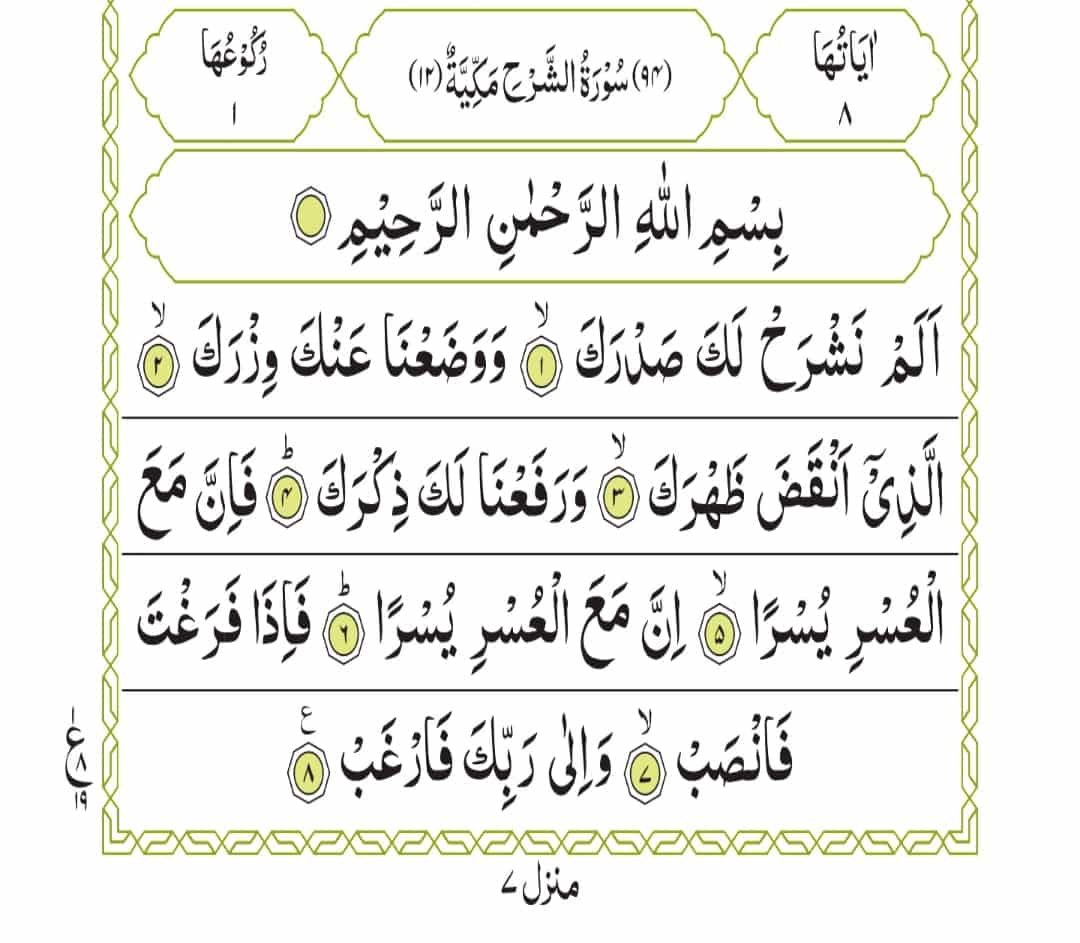 اٰيَاتُهَا
٨
(٩٤) سُوْرَةُ الشَّرْحِ مَكِّيَّةٌ (١٢)
رُكُوْعُهَا
١
بِسْمِ اللّٰهِ الرَّحْمٰنِ الرَّحِيْمِ
اَلَمْ نَشْرَحْ لَكَ صَدْرَكَ ۙ‏﴿۱﴾ وَوَضَعْنَا عَنْكَ وِزْرَكَ ۙ‏﴿۲﴾
الَّذِىْۤ اَنْقَضَ ظَهْرَكَ ۙ‏﴿۳﴾ وَرَفَعْنَا لَكَ ذِكْرَكَ ؕ‏﴿۴﴾ فَاِنَّ مَعَ
الْعُسْرِ يُسْرًا ۙ‏﴿۵﴾ اِنَّ مَعَ الْعُسْرِ يُسْرًا ؕ‏﴿۶﴾ فَاِذَا فَرَغْتَ
فَانْصَبْ ۙ‏﴿۷﴾ وَاِلٰى رَبِّكَ فَارْغَبْ ﴿۸﴾ ع
١
ع
٨
١٩
منزل ۷